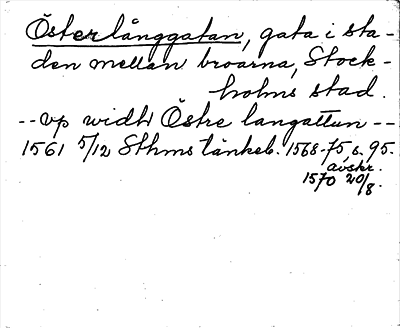 Österlånggatan, gata i sta-
den mellan broarna, Stock-
holms stad.
-- vp widh Östre langattun --
1561 5/12 Sthms tänkeb. 1568-75, s. 95.
avskr.
1570 20/8.